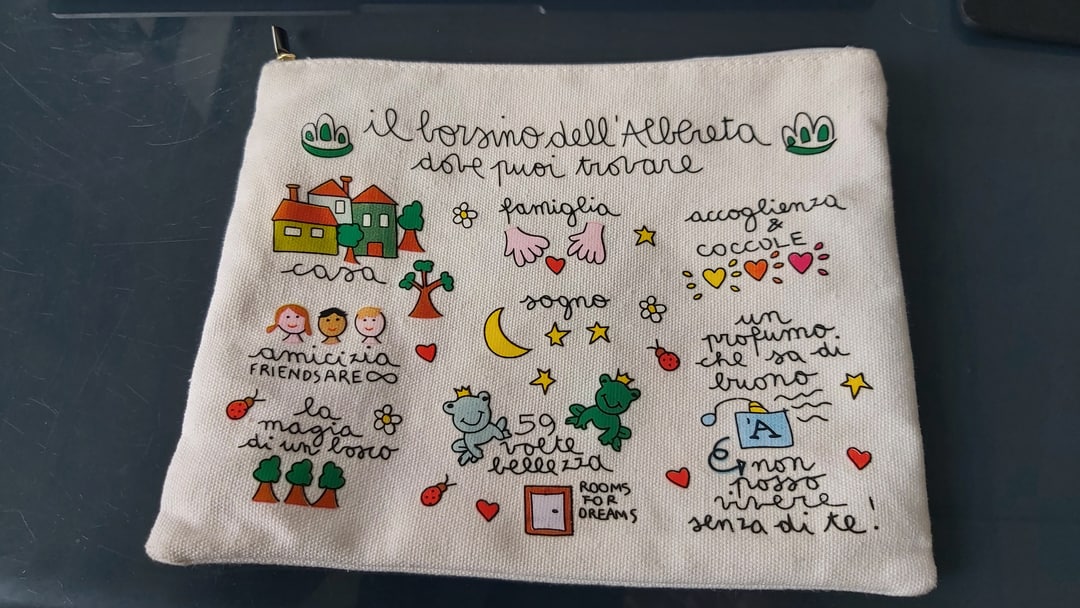 il borsino dell'Albereta
dove puoi trovare
casa
famiglia
accoglienza
&
COCCOLE
sogno
amicizia
FRIENDS ARE ∞
un
profumo
che sa di
buono
la
magia
di un bosco
59
volte
bellezza
'A
ROOMS
FOR
DREAMS
non
posso
vivere
senza di te!